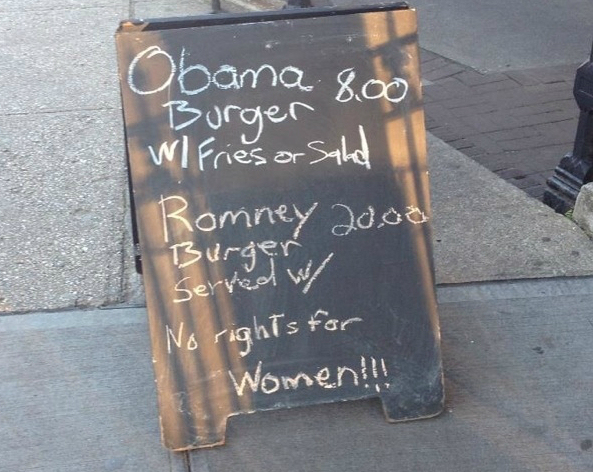 Obama 8.00
Burger
W/ Fries or Salad
Romney 20.00
Burger
Served W/
No rights for
Women!!!